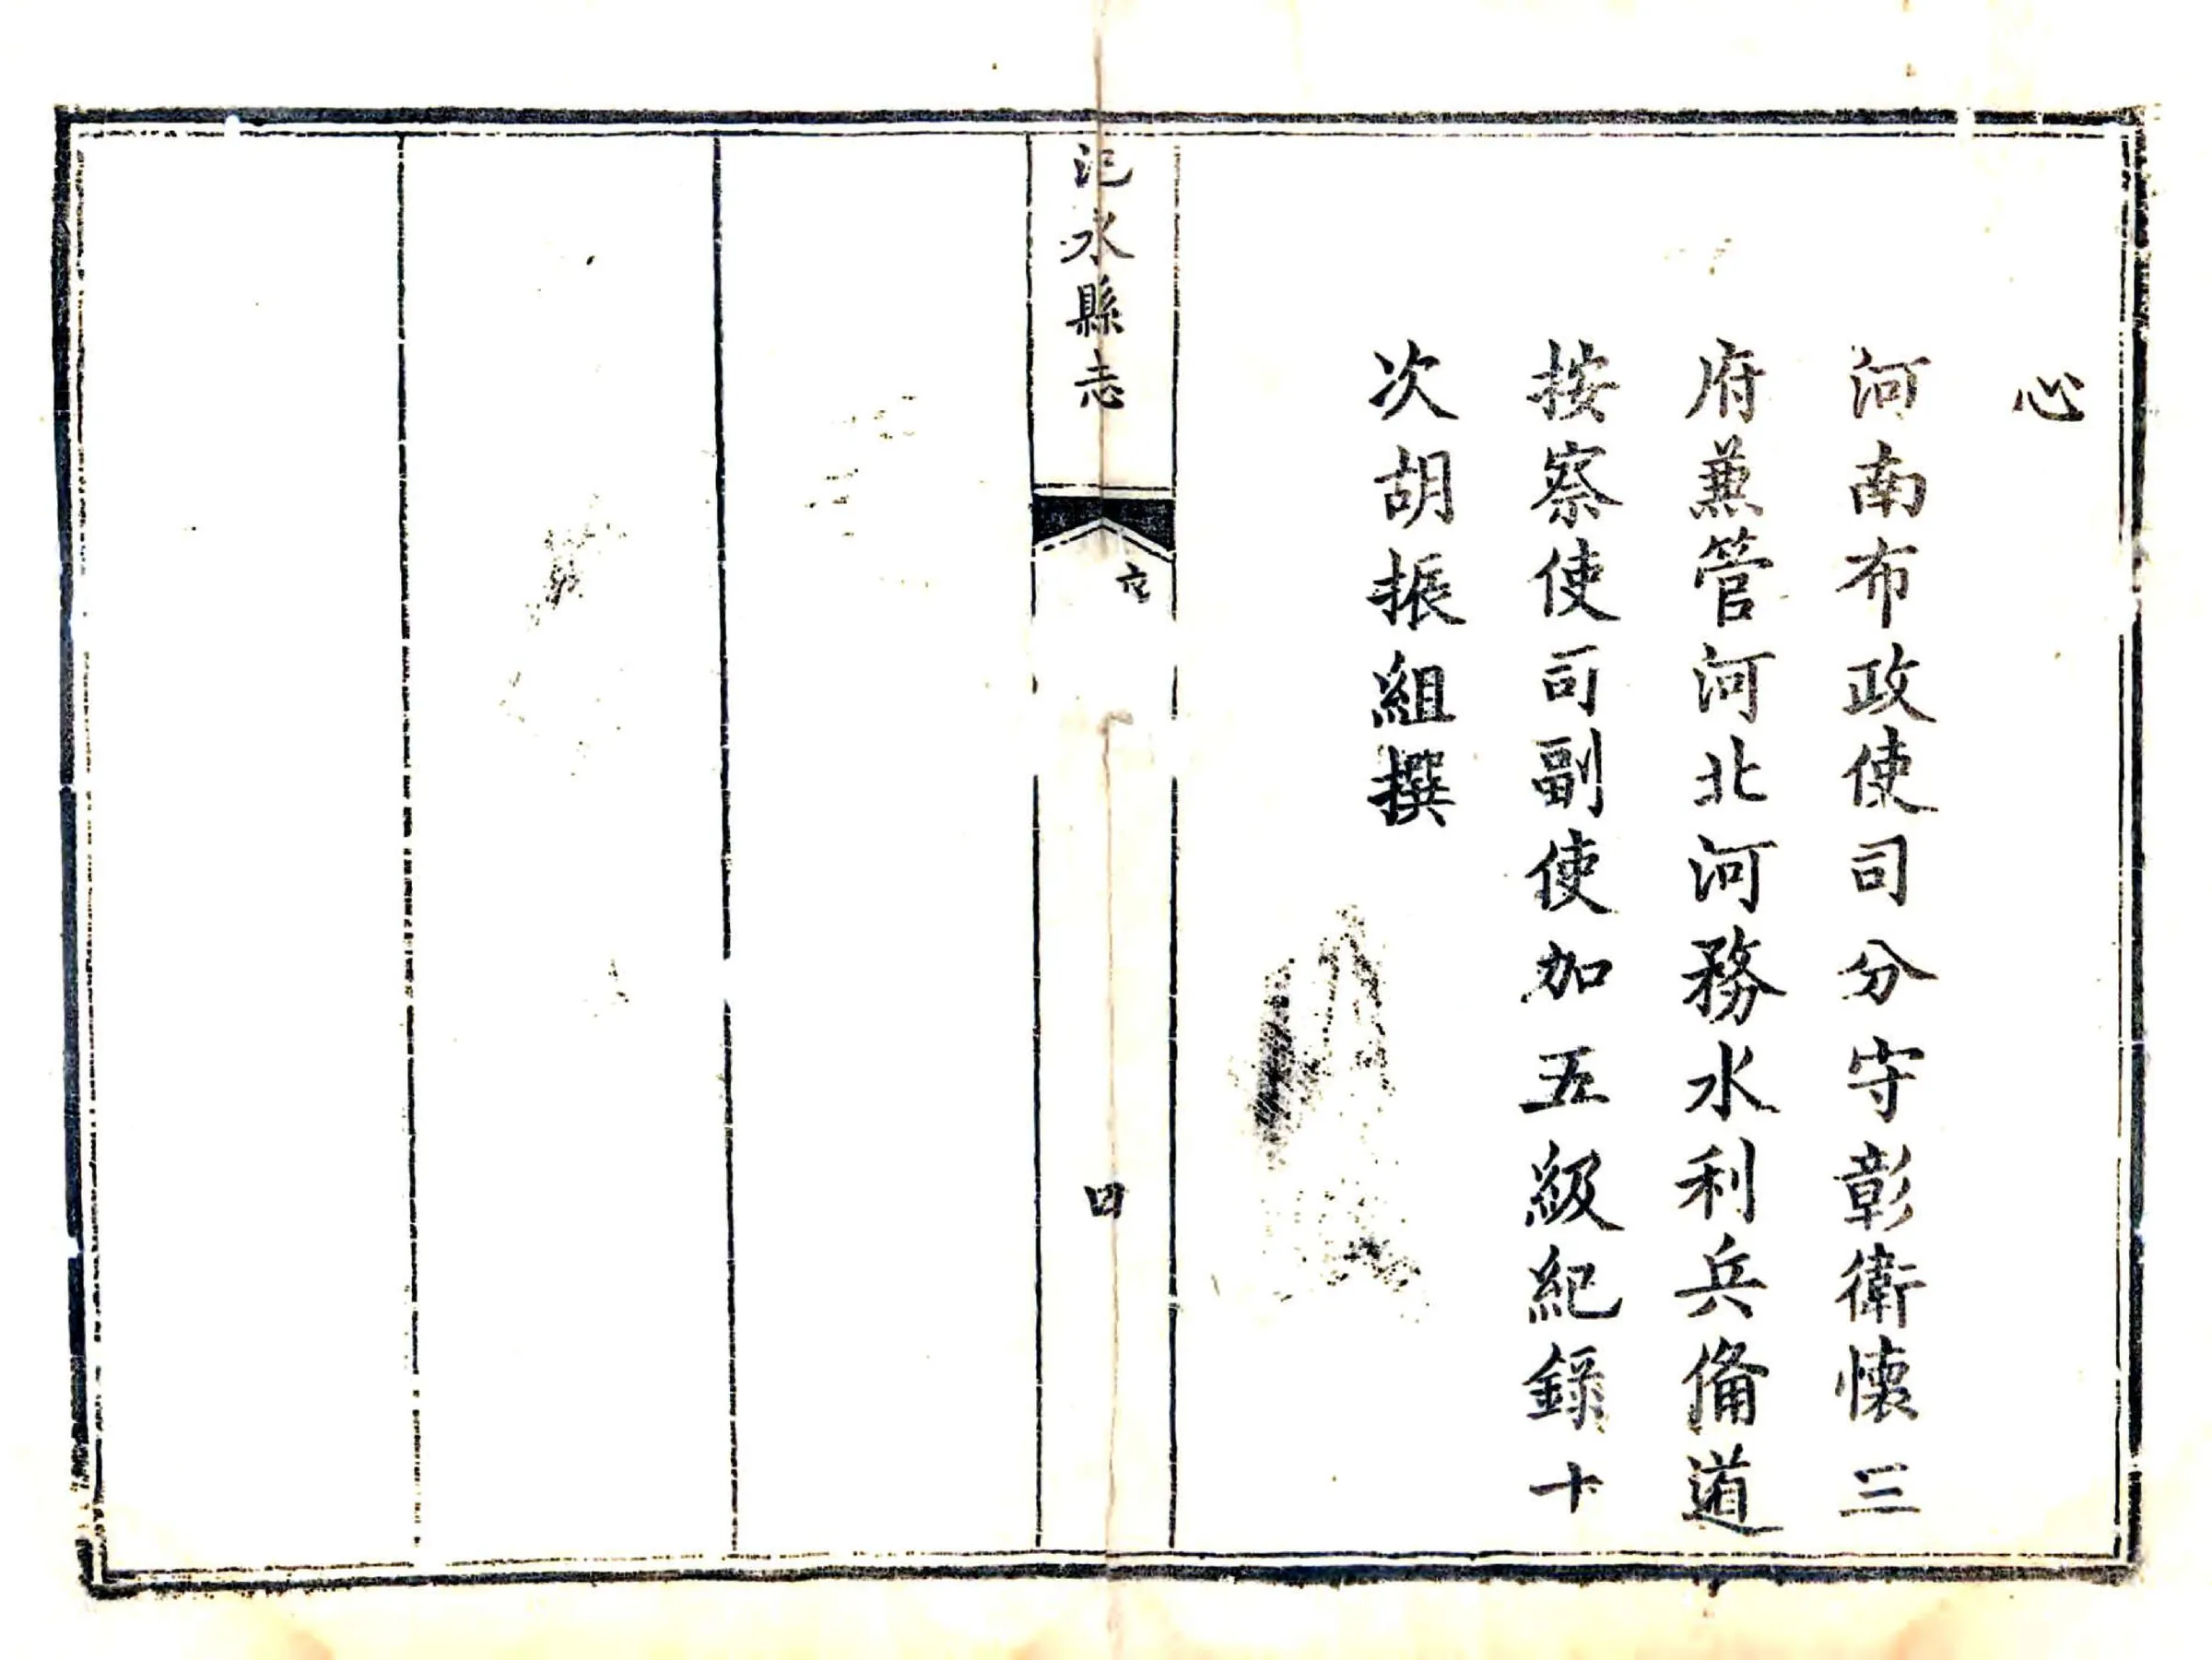 心
河南布政使司分守彰衛懷三
府兼管河北河務水利兵備道
按察使司副使加五級紀録十
次胡振組撰
汜水縣志
四